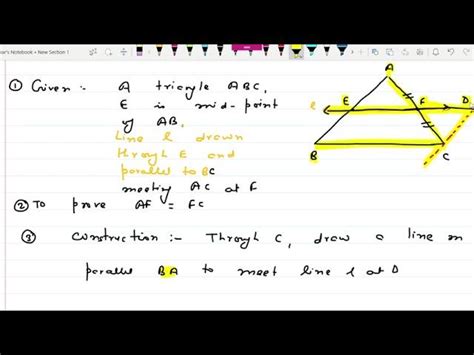 's Notebook • New Section 1
① Given :- A triangle ABC,
E is mid-point
of AB,
Line l drawn
through E and
parallel to BC
meeting AC at F
② To prove AF = FC
③ Construction :- Through C, draw a line m
parallel BA to meet line l at D
A
l E F D
B C